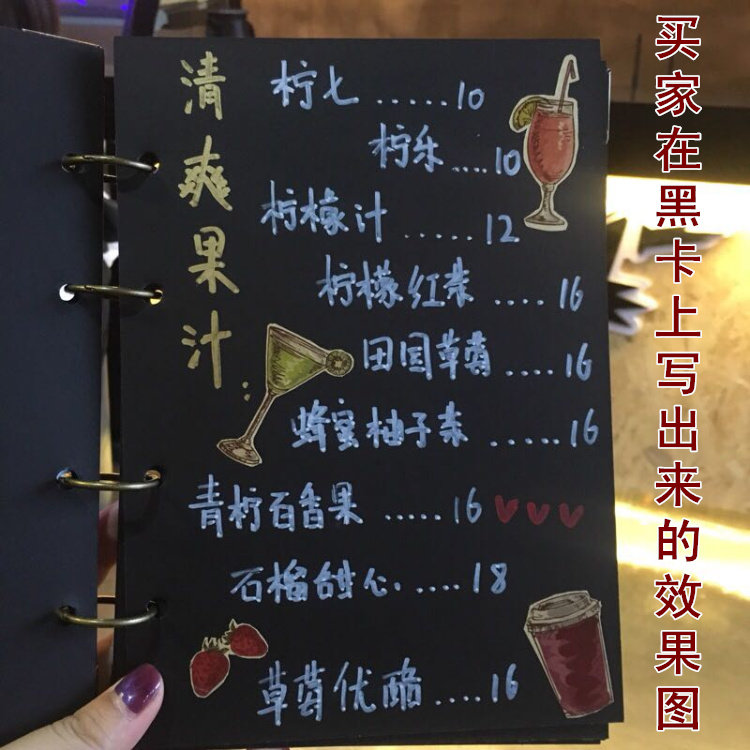 清爽果汁
柠七......10
柠乐....10
柠檬汁.....12
柠檬红茶....16
田园草莓....16
蜂蜜柚子茶.....16
青柠百香果.....16
石榴甜心....18
草莓优酪....16
买家在黑卡上写出来的效果图